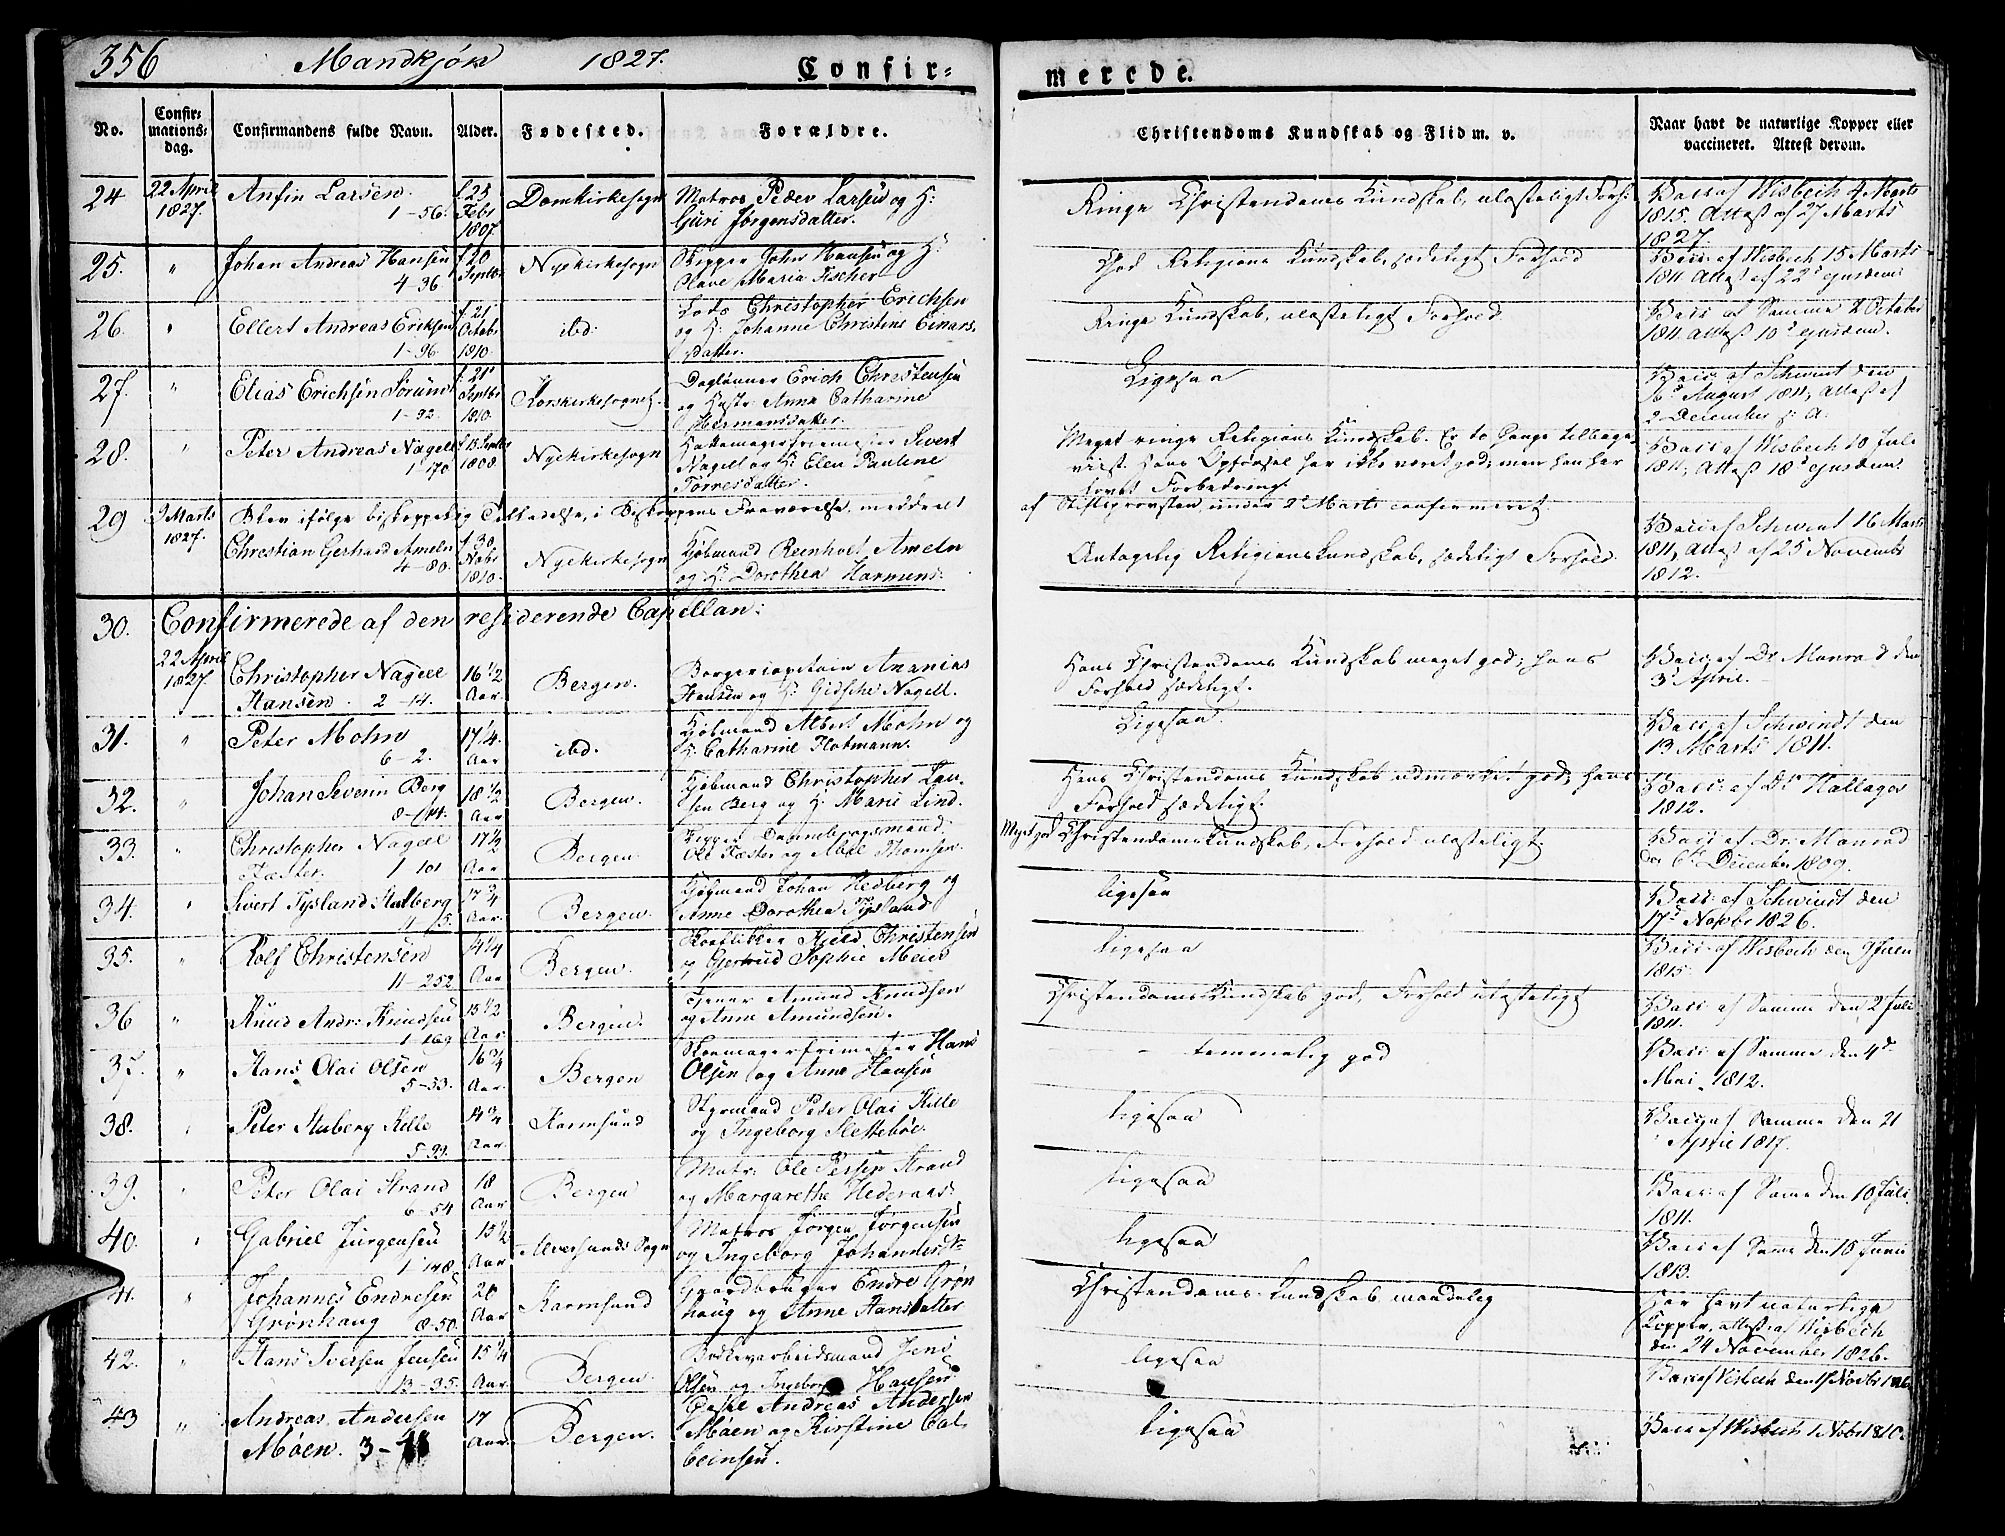 356 Mandkjön 1827. Confir-
merede.
No. Confir-mations-dag. Confirmandens fulde Navn. Alder. Fødested. Forældre.
Christendoms Kundskab og Flid m. v. Naar havt de naturlige Kopper eller vaccineret. Attest derom.
24 22 April 1827. Anfin Larsen. 1-56. f. 23 Febr 1807. Domkirkesogn Matros Peder Larsen og H: Guri Jørgensdatter.
Ringe Christendoms Kundskab, ulasteligt Forh: Vacc af Wisbech 4 Marts 1815. Attest af 27 Marts 1827.
25. " Johan Andreas Hansen 4-36 f. 20 Septbr Nyekirkesogn Skipper John Hansen og H: Olave Maria Fischer
God Religions Kundskab, sædeligt Forhold Vacc: af Wisbech 15 Marts 1811 Attest af 22d ejusdem.
26. " Ellert Andreas Eriksen 1-96. f. 21 Octobr 1810. ibd: Lods Christopher Erichsen og H: Johanne Christine Einarsdatter.
Ringe Kundskab, ulasteligt Forhold. Vacc af Samme 2 October 1811 Attest 10d ejusdem.
27. " Elias Erichsen Sørum 1-92. f. 21 Septbr 1810. Korskirkesognet. Daglønner Erich Christensen og Hustr: Anna Catharine Hermansdatter.
Ligesaa Vacc af Schwindt den 16 August 1811, Attest af 2 December s: A:
28. " Peter Andreas Nagell 1-170. f. 15 Septbr 1808. Nyekirkesogn Hattemagerfrimester Sivert Nagell og H: Elen Pauline Torresdatter.
Meget ringe Religions Kundskab. Er to Gange tilbageviist. Hans Opførsel har ikke været god; men han har lovet Forbedring. Vacc af Wisbech 10 Juli 1811, Attest 18d ejusdem.
29 2 Marts 1827. Blev ifølge biskoppelig Tilladelse, i Biskoppens Fraværelse, meddeelt
af Stiftsprovsten, under 2d Marts confirmeret.
Christian Gerhard Ameln 4-80. f. 30 Nobr 1810. Nyekirkesogn Kjøbmand Reinholt Ameln og H: Dorothea Harmens.
Antagelig Religionskundskab, sædeligt Forhold. Vacc af Schwindt 16 Marts 1811, Attest af 25 Novembr 1812.
30. Confirmerede af den residerende Capellan:
22 April 1827. Christopher Nagell Hansen. 2-14. 16 1/2 Aar. Bergen. Borgercapitain Ananias Hansen og H: Gidsche Nagell.
Hans Christendoms Kundskab meget god; hans Forhold sædeligt. Vacc af Dr. Monrad den 3 April.
31. " Peter Mohn 6-2. 17 1/4. Aar ibd. Kjøbmand Albert Mohn og H: Catharine Flotmann.
Ligesaa. Vacc af Schwindt den 13 Marts 1811.
32. " Johan Severin Berg 8-14. 18 1/2 Aar Bergen. Kjøbmand Christopher Lausen Berg og H: Marie Lind.
Hans Christendoms Kundskab udmærket god; hans Forhold sædeligt. Vacc: af Dr Hallager 1812.
33. " Christopher Nagell Fæster. 1 101 17 1/2 Aar Bergen. Skipper Dannebrogsmand. Ole Fæster og Abel Thomsen.
Meget god Christendomskundskab, Forhold ulasteligt. Vacc af Dr. Monrad den 6te December 1809.
34. " Sivert Tysland Hedberg 4/5. 17 3/4 Aar. Bergen. Kjøbmand Johan Hedberg og Anne Dorothea Tysland
ligesaa Vacc: af Schwindt den 17d Novbr 1826.
35. " Rolf Christensen 11-252 14 1/4 Aar Bergen. Skoeflikker Kield Christensen og Gjertrud Sophie Meier
ligesaa Vacc: af Wisbech den 9 Juni 1815.
36 " Knud Andr: Knudsen 1-169 15 1/2 Aar. Bergen. Tjener Amund Knudsen og Anne Amundsen.
Christendoms Kundskab god, Forhold ulasteligt Vacc af Samme den 2 Juli 1811.
37. " Hans Olai Olsen 5-33. 16 3/4 Aar. Bergen Skomagerfrimester Hans Olsen og Anne Hansen
- temmelig god Vacc: af Samme den 4d Mai 1812.
38. Peter Staberg Kille 5-99. 14 3/4 Aar Karmsund Styrmand Peder Olai Kille og Ingeborg Slettebøe.
ligesaa Vacc af Samme den 21 April 1817.
39. Peter Olai Strand 6-54 18 Aar Bergen Matr: Ole Persen Strand og Margarethe Hederaas.
ligesaa Vacc: af Samme den 10 Juli 1811.
40. Gabriel Jürgensen 1-148. 15 1/2 Aar Alversunds Sogn Matros Jørgen Jørgensen og Ingeborg Johannesdtr
ligesaa Vacc: af Same den 10 Juni 1813.
41. " Johannes Endresen Grønhaug 8-50. 20 Aar Karmsund Gaardbruger Endre Grønhaug og Anne Hansdatter
Christendoms Kundskab maadelig Har havt naturlige Kopper, attest af Wisbech den 24 November 1826.
42. " Hans Iversen Jensen 13-35. 15 1/4 Aar. Bergen. Jens Olsen og Ingeborg Hansen
ligesaa Vacc af Wisbech den 1 Novbr
43 " Andreas Andersen Møen. 3- 17 Aar. Bergen. Andreas Andersen Møen og Kirstine Colbeinsen.
ligesaa Vacc af Wisbech 1 Nobr 1810.